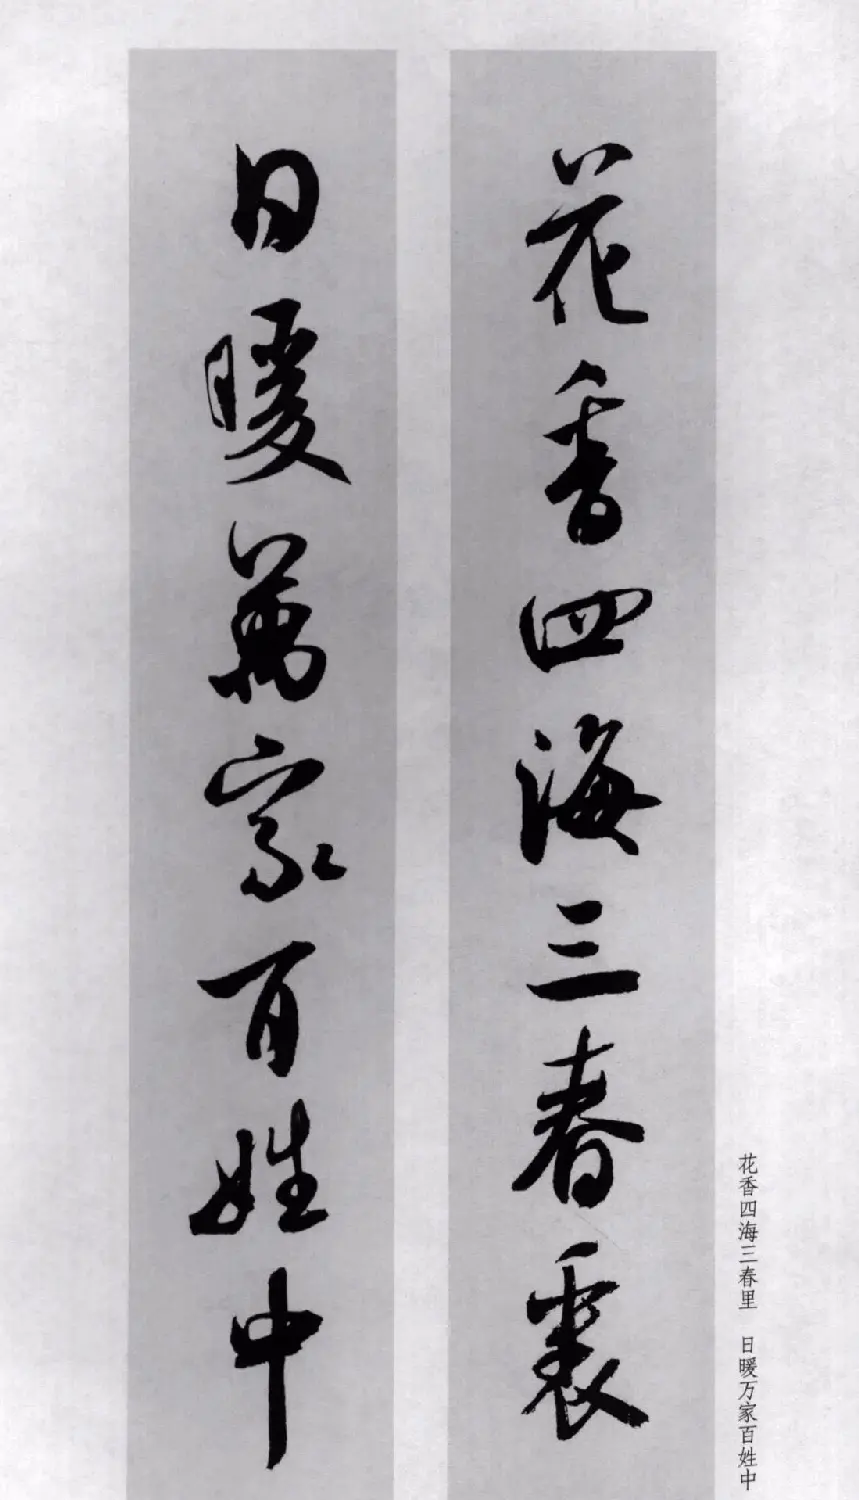 花香四海三春裏
日暖萬家百姓中
花香四海三春里 日暖万家百姓中